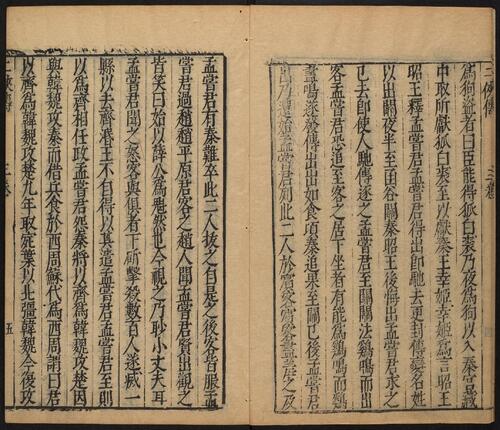 爲狗盜者曰臣能得狐白裘乃夜爲狗以入秦宫藏
中取所獻狐白裘至以獻秦王幸姬幸姬爲言昭王
昭王釋孟嘗君孟嘗君得出卽馳去更封傳變名姓
以出關夜半至函谷關秦昭王後悔出孟嘗君求之
已去卽使人馳傳逐之孟嘗君至關關法鷄鳴而出
客孟嘗君恐追至客之居下坐者有能爲鷄鳴而鷄
盡鳴遂發傳出出如食頃秦追果至關已後孟嘗君
出乃還始孟嘗君列此二人於賓客賓客盡羞之及
孟嘗君有秦難卒此二人拔之自是之後客皆服孟
嘗君過趙趙平原君客之趙人聞孟嘗君賢出觀之
皆笑曰始以薛公爲魁然也今視之乃眇小丈夫耳
孟嘗君聞之怒客與俱者下斫擊殺數百人遂滅一
縣以去齊湣王不自得以其遣孟嘗君孟嘗君至則
以爲齊相任政孟嘗君怨秦將以齊爲韓魏攻楚因
與韓魏攻秦而借兵食於西周蘇代爲西周謂曰君
以齊爲韓魏攻楚九年取宛葉以北彊韓魏今復攻
三卷
五